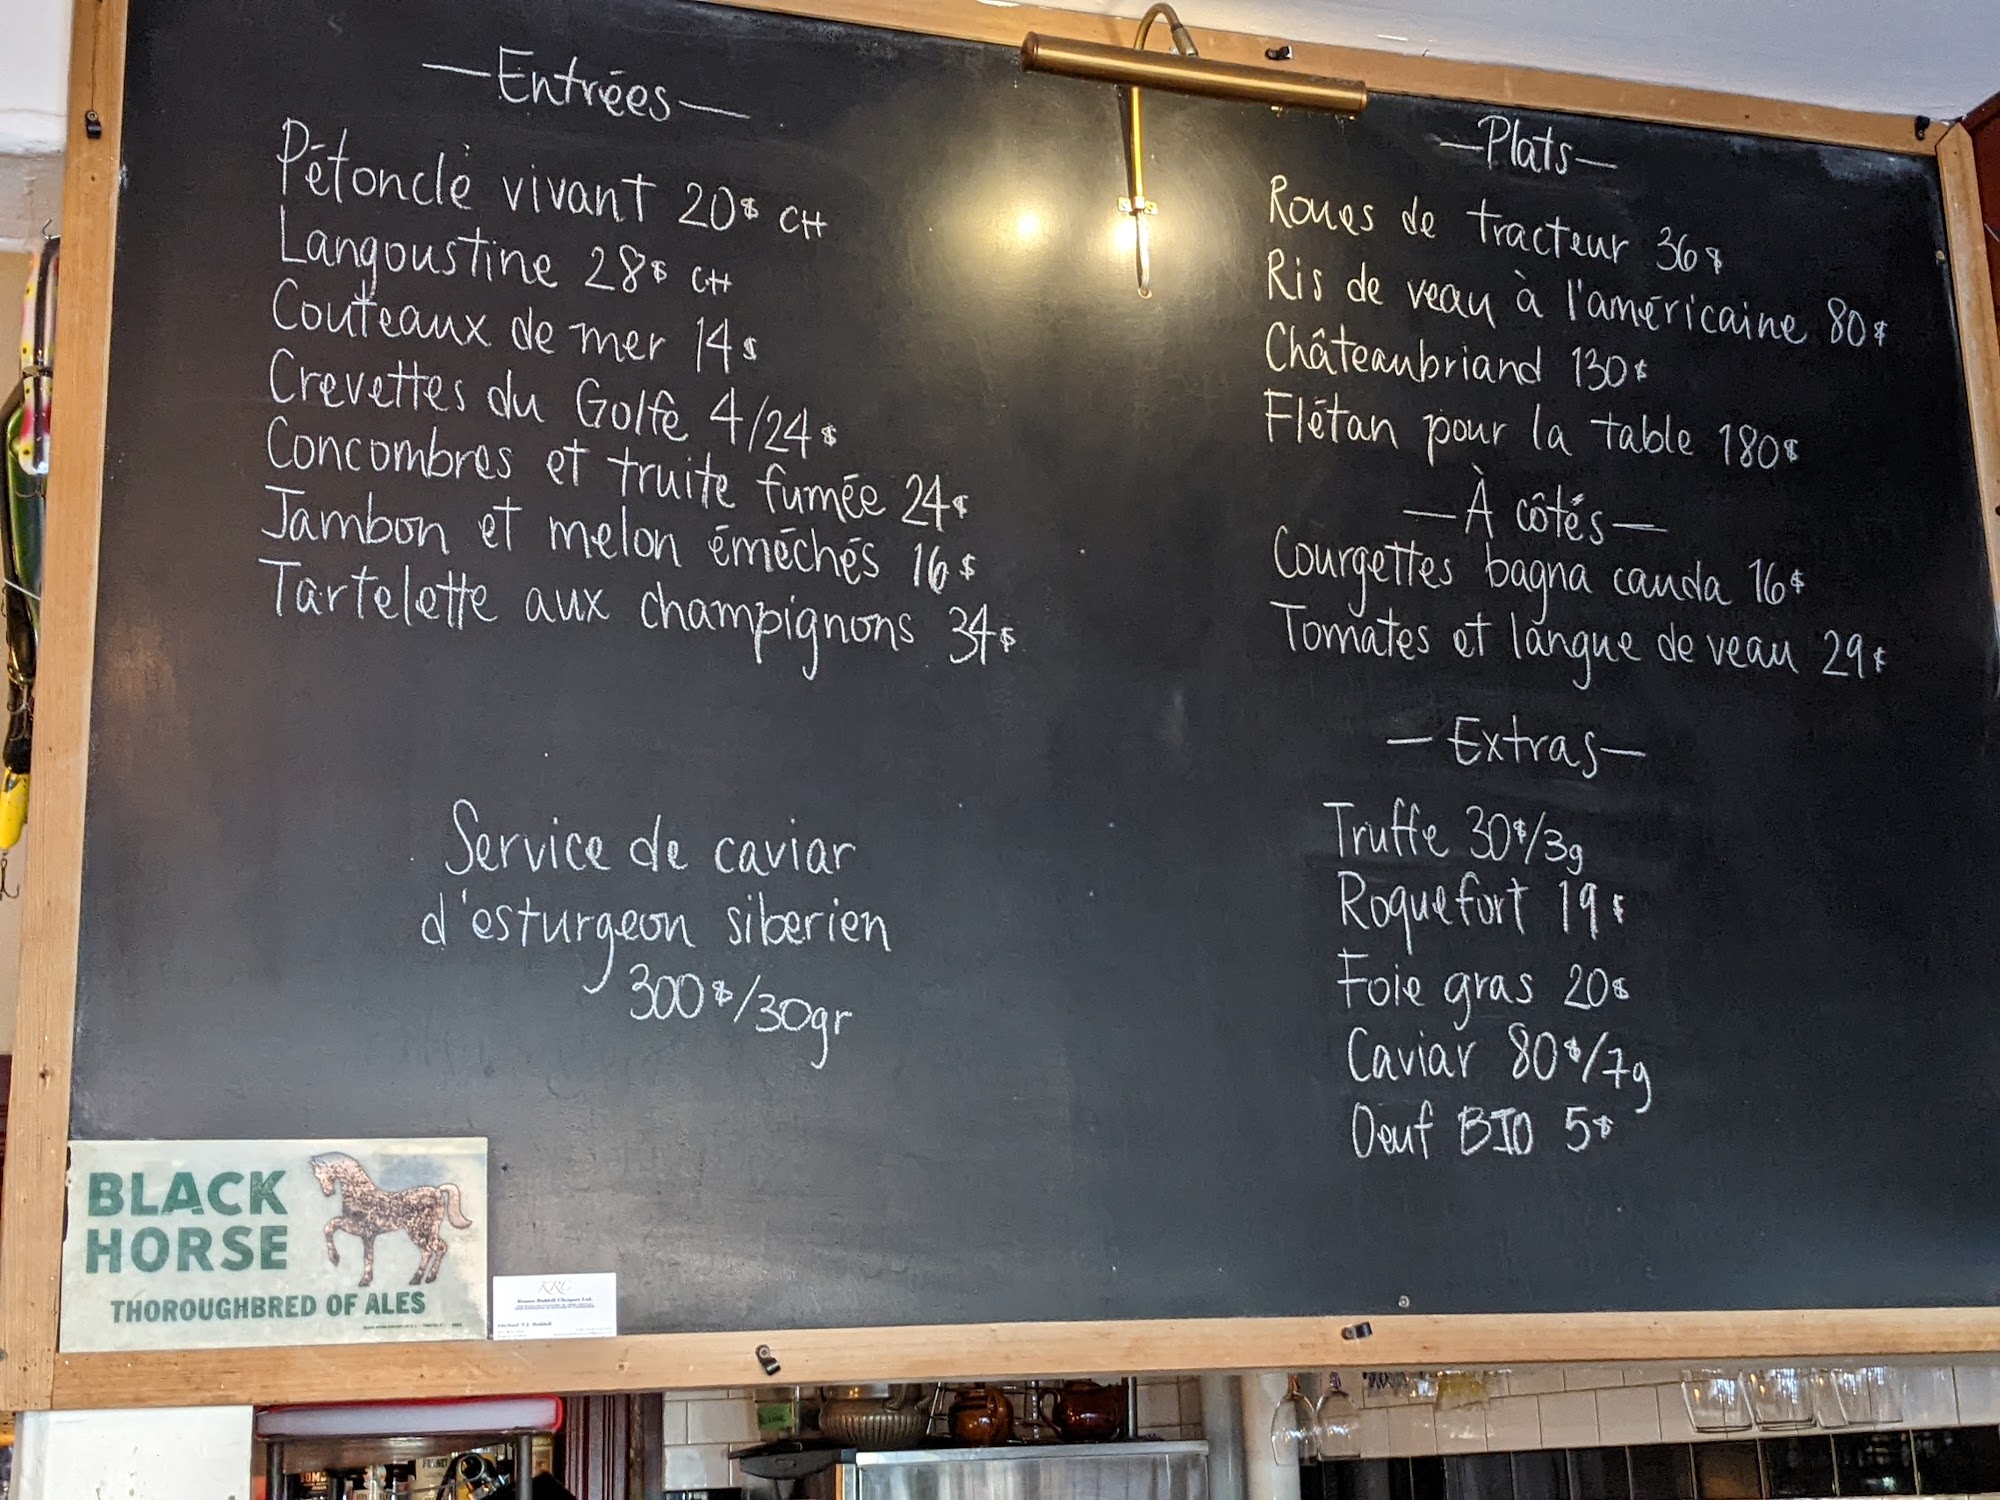 —Entrées—
Pétoncle vivant 20$ CH
Langoustine 28$ CH
Couteaux de mer 14$
Crevettes du Golfe 4/24$
Concombres et truite fumée 24$
Jambon et melon éméchés 16$
Tartelette aux champignons 34$
Service de caviar
d'esturgeon siberien
300$/30gr
—Plats—
Roues de tracteur 36$
Ris de veau à l'américaine 80$
Châteaubriand 130$
Flétan pour la table 180$
—À côtés—
Courgettes bagna cauda 16$
Tomates et langue de veau 29$
—Extras—
Truffe 30$/3g
Roquefort 19$
Foie gras 20$
Caviar 80$/7g
Oeuf BIO 5$
BLACK
HORSE
THOROUGHBRED OF ALES
KRC